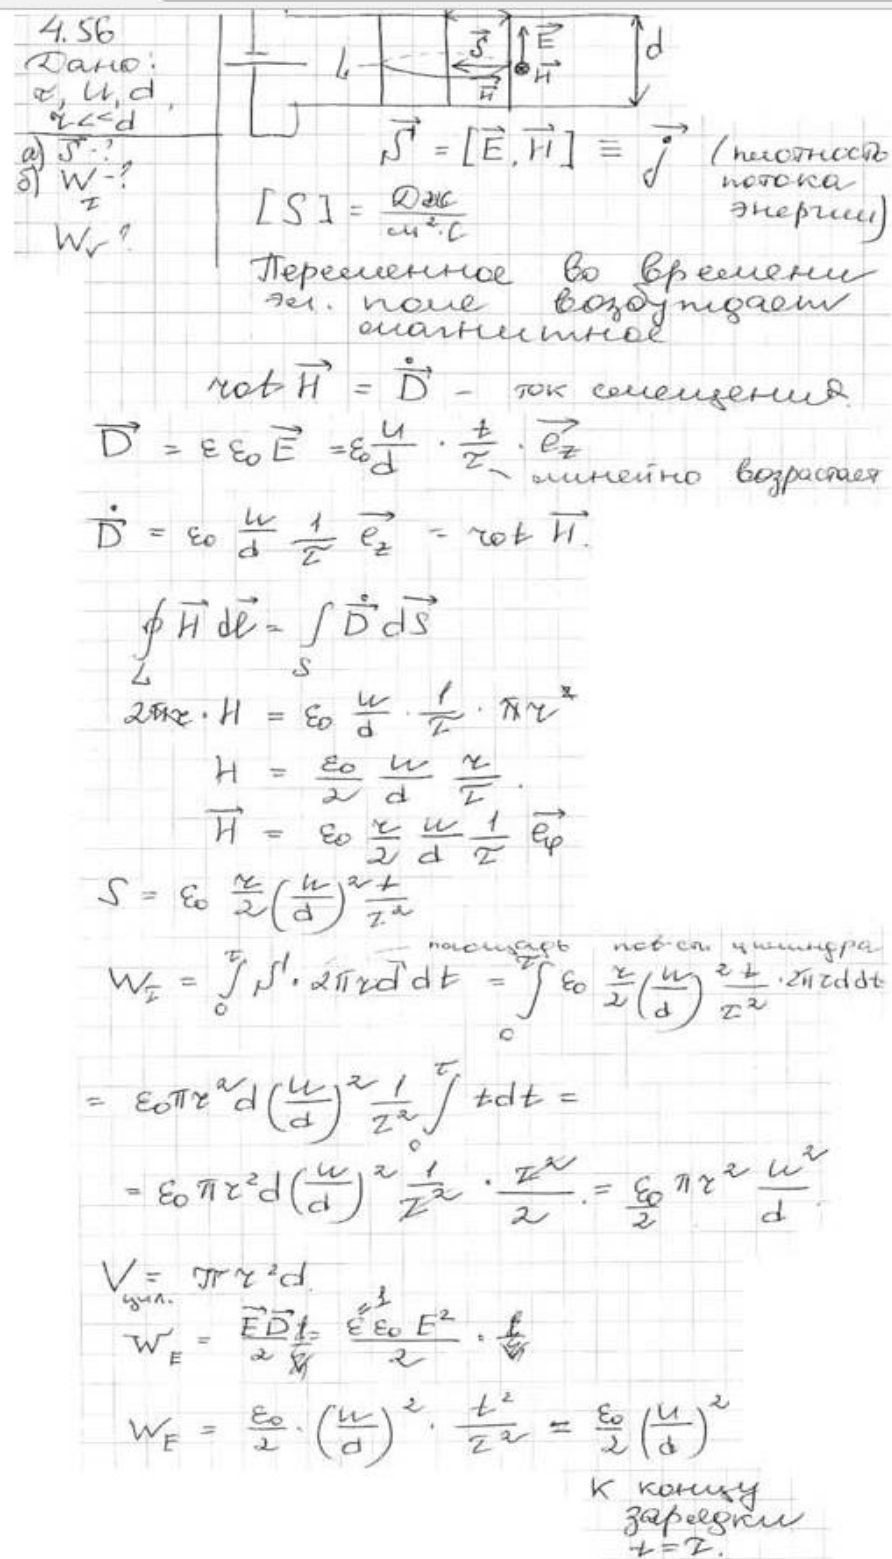 4.56
Дано:
r, U, d,
r << d
а) S⃗ - ?
б) W_τ - ?
W_V ?
L
S⃗
E⃗
H⃗
H⃗
d
S⃗ = [E⃗, H⃗] ≡ j⃗ (плотность потока энергии)
[S] = Дж / м²·с
Переменное во времени
эл. поле возбуждает
магнитное
rot H⃗ = Ḋ⃗ – ток смещения.
D⃗ = εε₀E⃗ = ε₀ U/d · t/τ · e⃗_z
линейно возрастает
Ḋ⃗ = ε₀ U/d 1/τ e⃗_z = rot H⃗.
∮_L H⃗ dl⃗ = ∫_S Ḋ⃗ dS⃗
2πr · H = ε₀ U/d · 1/τ · πr²
H = ε₀/2 U/d r/τ.
H⃗ = ε₀ r/2 U/d 1/τ e⃗_φ
S = ε₀ r/2 (U/d)² t/τ²
площадь пов-сти цилиндра
W_τ = ∫₀^τ S · 2πrd dt = ∫₀^τ ε₀ r/2 (U/d)² t/τ² · 2πrd dt
= ε₀πr²d (U/d)² 1/τ² ∫₀^τ t dt =
= ε₀πr²d (U/d)² 1/τ² · τ²/2 = ε₀/2 πr² U²/d.
V_цил. = πr²d.
W_E = E⃗D⃗/2 = εε₀E²/2 ·
=1
W_E = ε₀/2 · (U/d)² · t²/τ² = ε₀/2 (U/d)²
к концу
зарядки
t = τ.